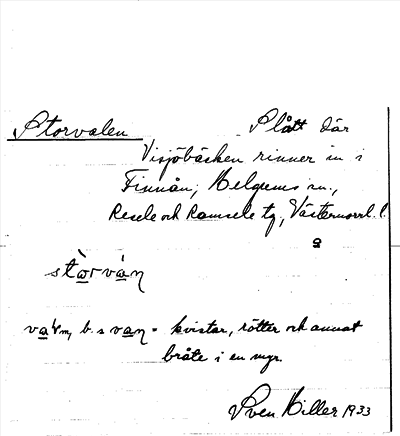 Storvalen Slått där
Visjöbäcken rinner in i
Finnån, Helgums sn.,
Resele och Ramsele tg, Västernorrl. l.
stòrván
var m, b. s van = kvistar, rötter och annat
bråte i en myr.
Sven Hiller 1933